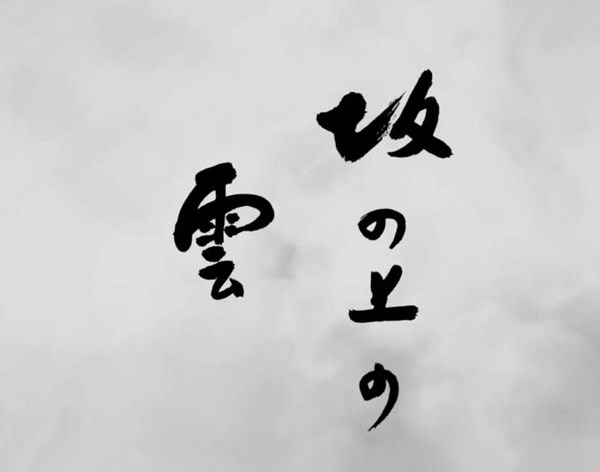 坂の上の
雲